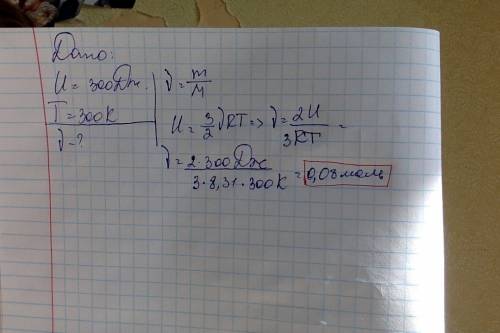 Дано:
U = 300Дж.
T = 300K
ν = ?
ν = m/M
U = 3/2 νRT => ν = 2U/3RT =
ν = 2·300Дж/3·8,31·300K = 0,08 моль